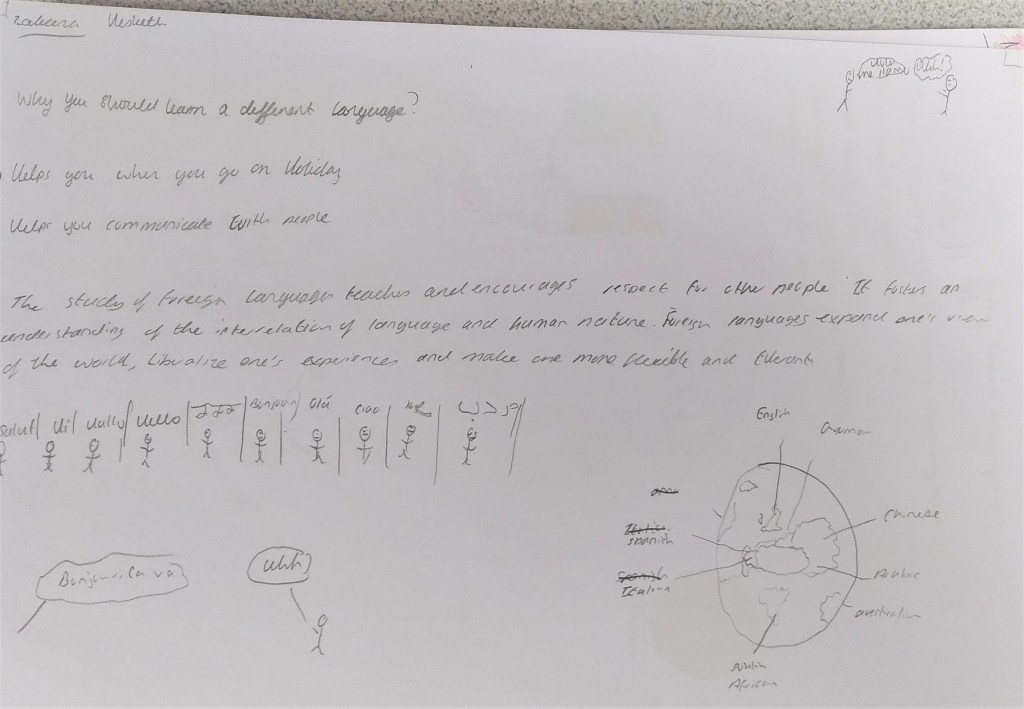 Why you should learn a different language?
Uhh!
Helps you when you go on Holiday
Helps you communicate with people
The study of foreign languages teaches and encourages respect for other people It fosters an
understanding of the interrelation of language and human nature. Foreign languages expand one's view
of the world, libralize one's experiences and make one more flexible and tolerant
Salut Hi Hallo Hello Bonjour Olá Ciao
English
German
Chinese
Spanish
Spanish
Italian
Arabic
australian
South
African
Bonjour, Ca va
Uhh